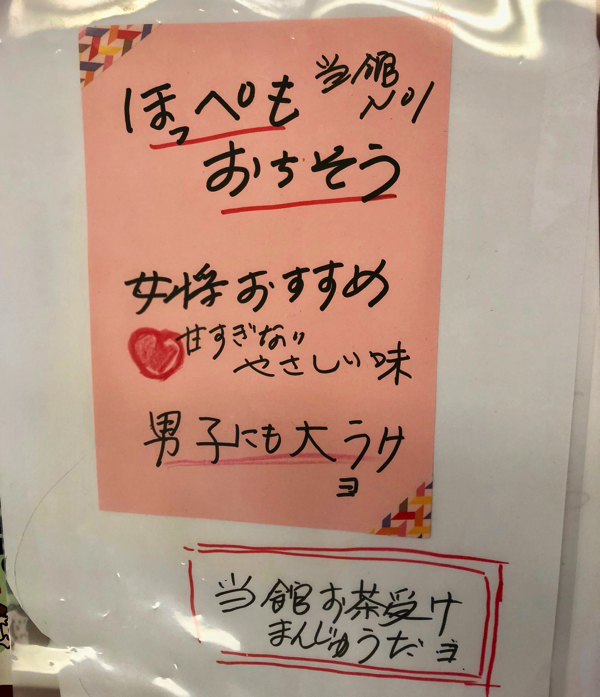 ほっぺも
当館
No1
おちそう
女将おすすめ
甘すぎない
やさしい味
男子にも大うけ
ヨ
当館お茶受け
まんじゅうだヨ